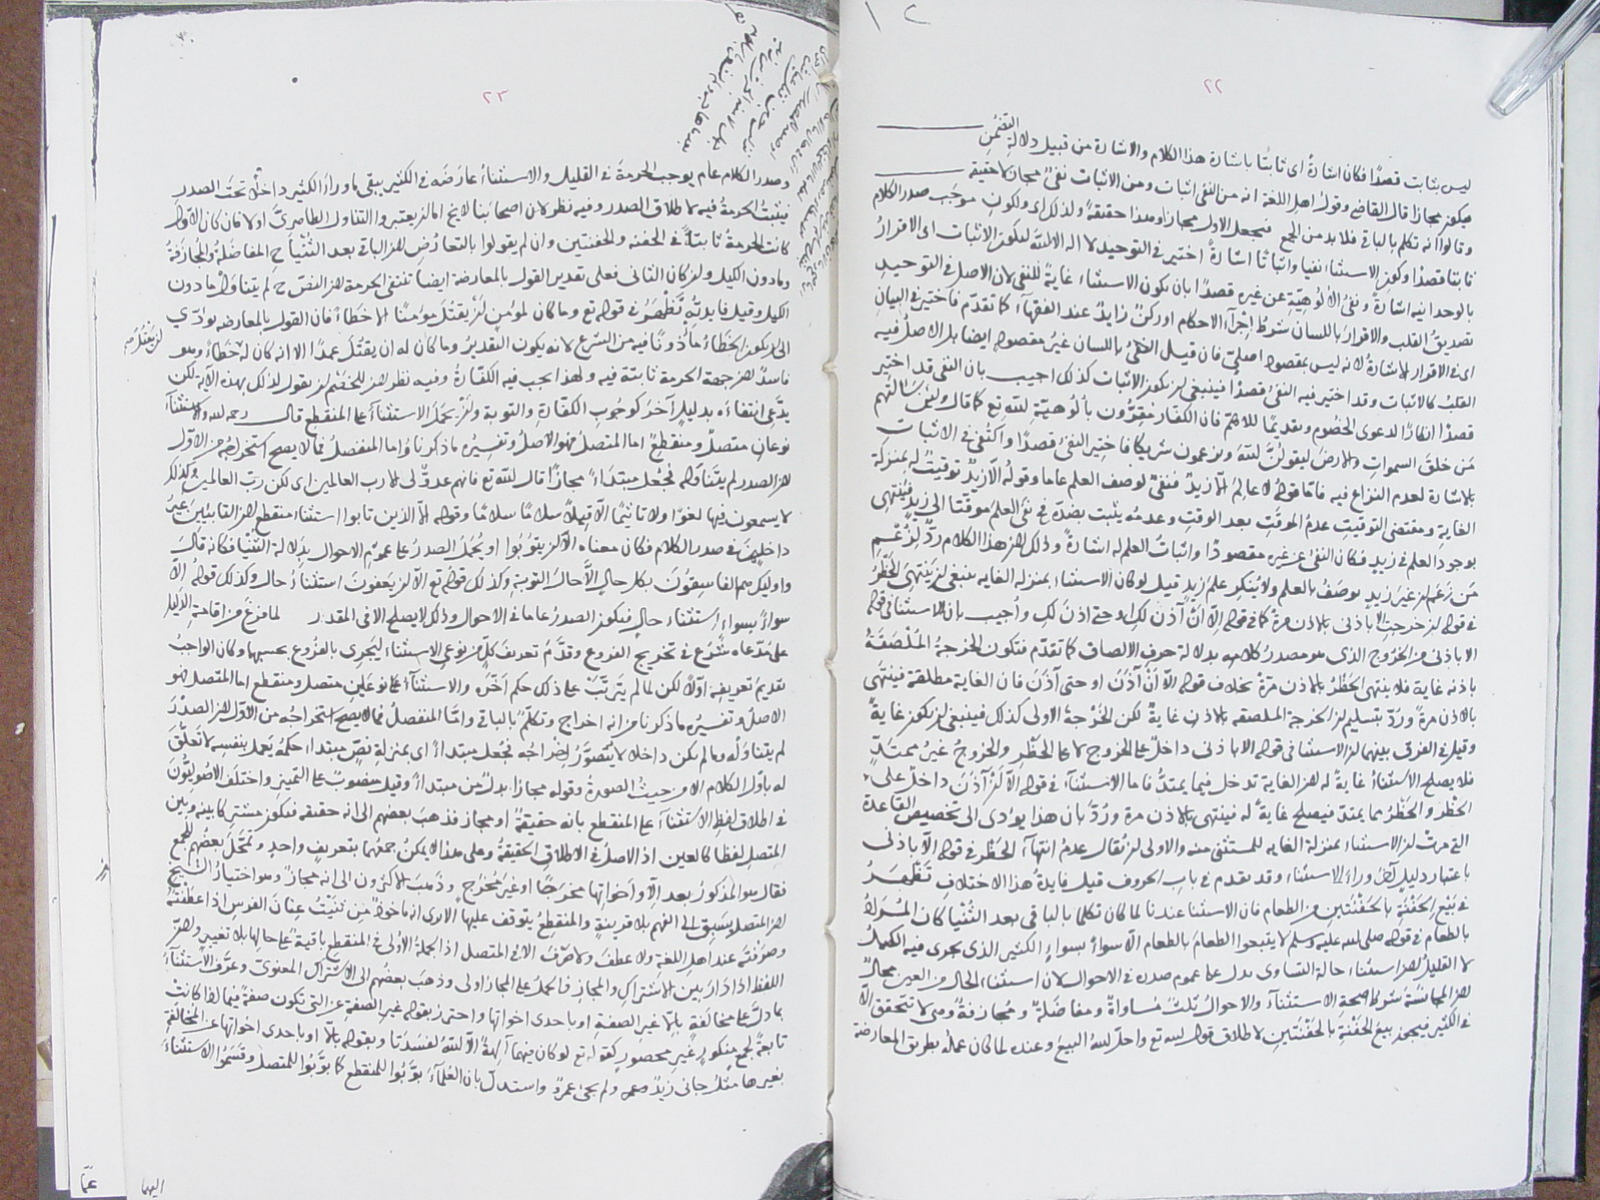 ٢٢
ليس بثابت قصدًا فكان اشارةً اى ثابتًا باشارة هذا الكلام والاشارة من قبيل دلالة التضمن
فيكون مجازًا قال القاضى وقول اهل اللغة انه من النفى اثبات ومن الاثبات نفىٌ مجاز لا حقيقة
وقالوا انه تكلم بالباقى فلا بد من الجمع فنجعل الاول مجازا وهذا حقيقة ولذلك اى ولكون موجَب صدر الكلام
ثابتا قصدًا وكون الاستثناء نفيا واثباتا اشارةً اختير فى التوحيد لا اله الا الله ليكون الاثبات اى الاقرار
بالوحدانية اشارةً ونفىُ الالُوهِيَّةِ عن غيره قصدًا بان يكون الاستثناء غايةً للنفى لان الاصل فى التوحيد
تصديقُ القلب والاقرارُ باللسان شرطُ اِجْرآء الاحكام او ركنٌ زايدٌ عند الفقهآء كما تقدّم فاختير فى البيان
اى فى الاقرار الاشارةُ لانه ليس بمقصود اصلىّ فان قيل النفىُ باللسان غيرُ مقصود ايضا بل الاصلُ فيه
القلبُ كالاثبات وقد اختير فيه النفىُ قصدًا فينبغى ان يكون الاثبات كذلك اجيب بان النفى قد اختير
قصدًا انكارًا لدعوى الخصوم وتقديمًا للاهمّ فان الكفار مُقِرُّون بألُوهيّة الله تع كما قال ولئن سَالتَهم
مَن خلقَ السمواتِ والارضَ ليقولُنَّ الله ويزعمون شريكا فاختير النفىُ قصدًا واكتُفى فى الاثبات
بالاشارة لعدم النزاع فيه فامّا قولُه لا عالِمُ الا زيدٌ فنفىٌ لوصف العلم عاما وقولُه الّا زيدٌ توقيتٌ له بمنزلة
الغاية ومقتضى التوقيت عدمُ الموقّتِ بعد الوقتِ وعدمُه يثبت بضدّه فى نفى العلم موقّتا الى زيدٍ فيَنتهى
بوجود العلم فى زيدٍ فكان النفىُ عن غيره مقصودًا واثباتُ العلم له اشارةً وذلك لان هذا الكلام ردٌّ لِزُعْمِ
مَن زعَم ان غيرَ زيدٍ يوصَفُ بالعلم ولا يُنكِر علمَ زيدٍ قيل لو كان الاستثناء بمنزلة الغاية ينبغى ان يَنتهىَ الحَظْرُ
فى قوله ان خرجتِ الا باذنى بالاذن مرةً كما فى قوله اِلّا اَنْ آذنَ لكِ او حتى آذنَ لكِ واُجيب بان الاستثنا فى قوله
الا باذنى من الخروج الذى هو مصدرُ كلامه بدلالة حرف الالصاق كما تقدّم فتكون الخرجةُ المُلصَقةُ
باذنه غايةً فلا ينتهى الحَظْرُ بالاذن مرّةً بخلاف قوله الّا أنْ آذَنَ او حتى آذنَ فان الغاية مطلقة فينتهى
بالاذن مرةً ورُدّ بتسليم ان الخرجة الملصقة بالاذن غايةٌ لكن الخَرْجةُ الاولى كذلك فينبغى ان يكون غايةً
وقيل فى الفرق بينهما ان الاستثنا فى قوله الا باذنى داخلٌ على الخروج لا على الحَظْرِ والخروجُ غيرُ ممتدّ
فلا يصلح الاستثناءُ غايةً له لان الغاية تدخل فيما يمتدُّ فاما الاستثنآء فى قوله الّا اَنْ آذنَ داخلٌ على
الحَظْر والحَظْرُ مما يمتدّ فيصلح غايةً له فينتهى بالاذن مرة ورُدّ بأن هذا يؤدى الى تخصيص القاعدة
التى مرّت ان الاستثناء بمنزلة الغاية للمستثنى منه والاولى ان يُقال عدمُ انتهآء الحَظْر فى قوله الّا باذنى
باعتبار دليلٍ آخر ورآءَ الاستثناء وقد تقدم فى باب الحروف قيل فايدةُ هذا الاختلاف تَظْهَرُ
فى بَيْع الحَفْنَةِ بالحَفْنَتين من الطعام فان الاستثنا عندنا لما كان تكلما بالباقى بعد الثُنْيا كان المُرادُ
بالطعام فى قوله صلى الله عليه وسلم لا يتبيعوا الطعامَ بالطعام الّا سواءً بسواءٍ الكثير الذى يجرى فيه الكيلُ
لا القليلُ لان استثناء حالة التساوى يدل على عموم صدره فى الاحوال لان استثناء الحال من العين محالٌ
لان المجانَسَةَ شرطُ صحة الاستثنآء والاحوالُ ثلثٌ مُساواةٌ ومفاضَلةٌ ومُجازفةٌ وهى لا تتحقق الّا
فى الكثير فيجوز بيعُ الحَفْنةِ بالحَفْنَتَينِ لاطلاق قوله الله تع واحل الله البيعَ وعنده لما كان عملُه بطريق المعارضة
٢٣
وصدر الكلام عام يوجب الحرمةَ فى القليل والاستثناءُ عارَضَه فى الكثير يبقى ما وراءَ الكثير داخلًا تحتَ الصدر
فيثبت الحرمةُ فيه لاطلاق الصدر وفيه نظر لان اصحابنا لا يخ اما ان يعتبروا التناوُلَ الظاهرىَّ اولا فان كان الاول
كانت الحرمةُ ثابتةً فى الحَفنه والحَفنتين وان لم يقولوا بالتعارُض لان الباقى بعد الثُنْيا ح المفاضَلةُ والمجازَفةُ
وما دون الكيل وان كان الثانى فعلى تقدير القول بالمعارضة ايضا تنتفى الحرمة لان النصّ ح لم يتناول ما دون
الكيل وقيل فايدتُه تَظْهَرُ فى قوله تع وما كان لمؤمنٍ ان يَقتُل مؤمنًا الا خطأً فان القول بالمعارضه يؤدّى
الى ان يكون الخَطَأُ مأذونًا فيه من الشرع لانه يكون التقديرُ وما كان له ان يقتُلَ عمدًا الا انه كان له خطأً وهو
فاسدٌ لان جهة الحرمة ثابتة فيه ولهذا يجب فيه الكفّارةُ وفيه نظر لان للخَصْم ان يقول ذلك بهذه الآية لكن
يدَّعى انتفاءَه بدليلٍ آخرَ كوجوبِ الكفّارةِ والتوبة وان يَحمل الاستثنآءَ على المنقطع قال رحمه الله والاستثنآء
نوعان متصلٌ ومنقطعٌ اما المتصلُ فهو الاصلُ وتفسيرُه ما ذكرنا واما المنفصلُ فما لا يصح استخراجه من الاوّل
لان الصدر لم يتناوله فجُعل مبتدَاءً مجازًا قال الله تع فانهم عدوٌّ لى الا ربَّ العالمين اى لكن ربّ العالمين وكذلك
لا يسمعون فيها لغوًا ولا تأثيمًا الّا قيلًا سلامًا سلامًا وقوله الّا الذين تابوا استثناء منقطع لان التائبين غيرُ
داخلينَ فى صدر الكلام فكان معناه الّا ان يتوبُوا او يُحمَل الصدرُ على عمومِ الاحوال بدَلالة الثُنْيا فكانه قال
واوليك هم الفاسِقُونَ بكل حالٍ الَّا حالَ التوبةِ وكذلك قوله تع الّا ان يَعفونَ استثناءُ حالٍ وكذلك قوله الّا
سوآءً بسوآءٍ استثناء حالٍ فيكون الصدرُ عاما فى الاحوال وذلك لا يصلح الا فى المقدر لما فرغ من اقامة الدليل
على مُدَّعاه شَرَع فى تخريج الفروع وقدَّمَ تعريفَ كلٍّ من نوعى الاستثناء ليَجرى بالفروع بحسبها وكان الواجبُ
تقديمَ تعريفه اوّلًا لكن لما لم يَتَرتَّب على ذلك حكم اَخَّره والاستثنآءُ على نوعَينِ متصل ومنقطع اما المتصل هو
الاصلُ وتفسيرُه ما ذكرنا من انه اخراج وتكلّمٌ بالباقى وامّا المنفصلُ فما لا يصح استخراجُه من الاوّل لان الصدْرَ
لم يتناوَلْه وما لم يكن داخلا لا يُتَصوَّرُ اِخْراجُه فجُعل مبتدأً اى بمنزلة نصٍّ مبتداء حكمُه يَعمل بنفسه لا تعلُّقَ
له باوّل الكلام الا من حيثُ الصورةُ وقوله مجازًا بدلٌ من مبتدأ وقيل منصوبٌ على التمييز واختلف الاصُولِيُّونَ
فى اطلاق لفظِ الاستثنآء على المنقطع بانه حقيقةٌ او مجاز فذهبَ بعضهم الى انه حقيقة فيكون مشتركا بينه وبين
المتصل لفظًا كالعين اذ الاصلُ فى الاطلاق الحقيقةُ وعلى هذا لا يمكنُ جمعُهما بتعريفٍ واحدٍ وتمحَّلَ بعضهم للجمع
فقال هو المذكورُ بعد الّا واَخواتِها مخرَجًا او غيرَ مُخرَجٍ وذهبَ الاكثرون الى انه مجازٌ وهو اختيارُ الشيخ
لان المتصلَ يَسبِق الى الفهم بلا قرينةٍ والمنقطعُ يتوقف عليها الا يرى انه ماخوذٌ من ثَنَيْتُ عِنانَ الفرسِ اذا عطَفْتَهُ
وصرَفْتَه عند اهل اللغة ولا عطفَ ولا صَرْفَ الا فى المتصل اذ الجملةُ الاولى فى المنقطع باقيةٌ على حالها بلا تغييرٍ ولان
اللفظ اذا دارَ بين الاشتراكِ والمجازِ فالحملُ على المجاز اولى وذهبَ بعضهم الى الاشتراك المعنوى وعرَّف الاستثنآءَ
بما دلَّ على مخالفةٍ بالّا غيرِ الصفةِ او باحدى اخواتِها واحترز بقوله غيرِ الصفة عن التى تكون صفةً فيما اذا كانت
تابعةً لجمعٍ منكورٍ غيرِ محصورٍ كقوله تع لو كان فيهما آلهةٌ الّا اللهُ لفسَدَتا وبقوله بالّا او باحدى اخواتها عن المخالفة
بغيرها مثلُ جاءنى زيدٌ ولم يجئ عمرو واستدلّ بان العُلَمآءَ بوَّبُوا للمنقطع كما بوَّبُوا للمتصل وقسَّمُوا الاستثنآءَ
اليهما